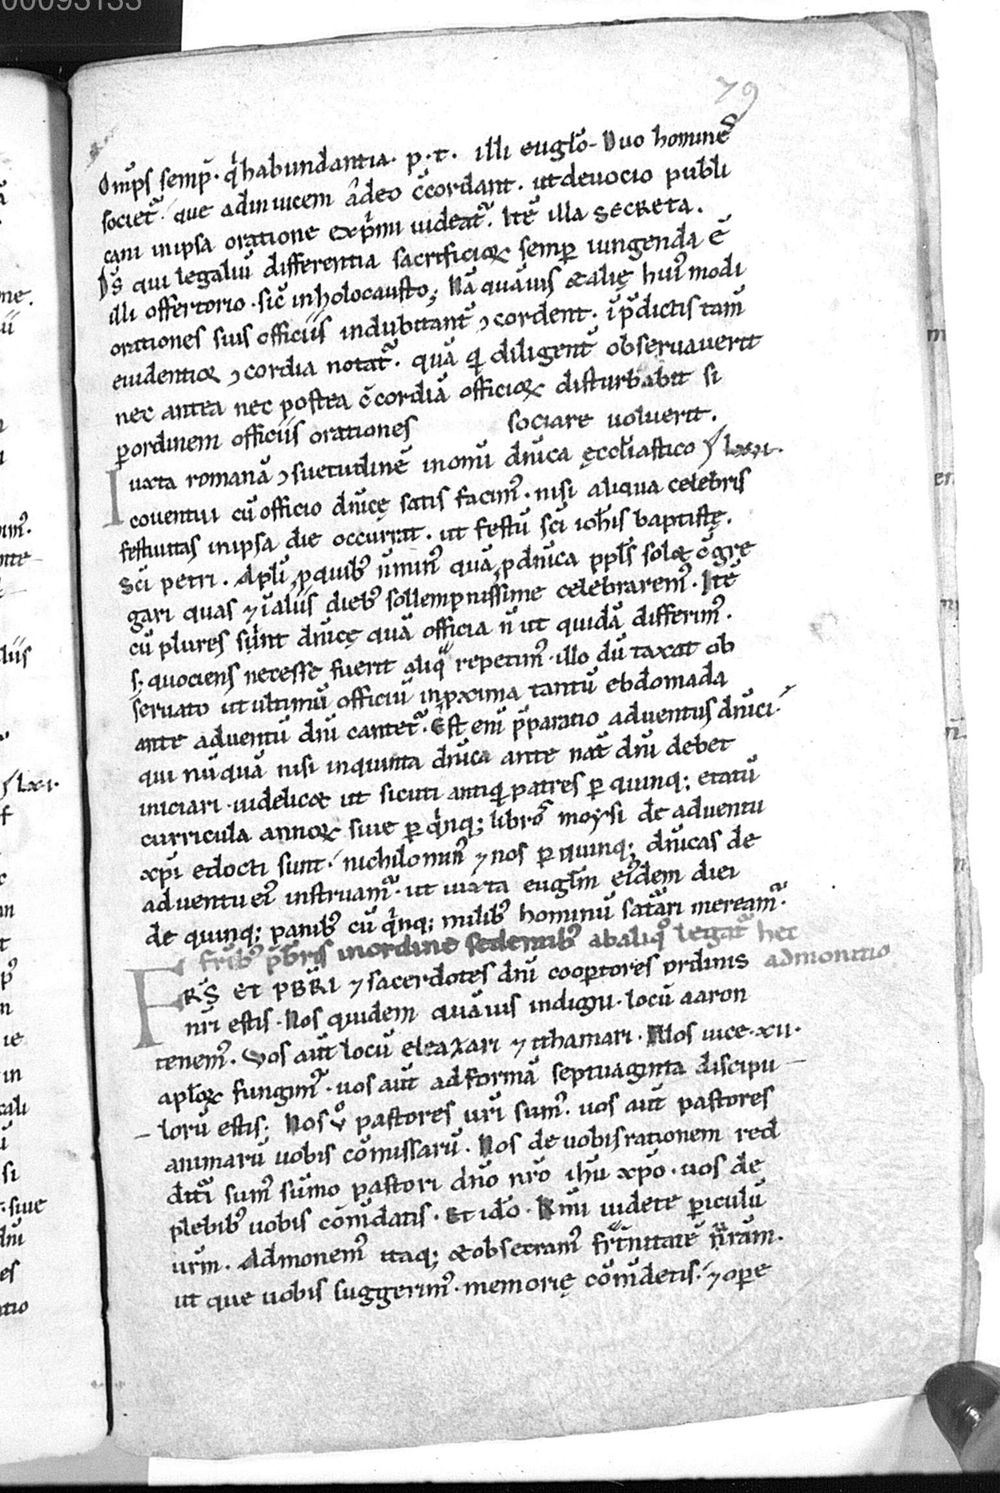 00093133
79
Om̄ps semp̄. q̇habundantia. p. t. illi eugło. Duo homine᷒
societ᷑. que adinuicem ådeo c̄cordant. ut deuocio publi
cani in ipsa oratione exp̍mi uideat᷑. Itē illa secreta.
Ds̄ qui legaliū differentia sacrificioꝝ semꝑ iungenda ē
illi offertorio. sic̄ in holocausto; Nā quāuis & alię hui᷒modi
orationes suis officiis indubitant̄ ꝯcordent. ī p̄dictis tam̄
euidentior ꝯcordia notat᷑. quā qi diligent̄ obseruauerit
nec antea nec postea c̄cordiā officioꝝ disturbabit si
ꝑ ordinem officiis orationes sociare uoluerit.
Iuxta romanā ꝯsuetudinē in om̄i dn̄ica ęccłiastico lxxi.
conuentui cū officio dn̄icę satis facim᷒. nisi aliqua celebris
festiuitas in ipsa die occurrat. ut festū sc̄i ioħis baptistę.
Sc̄i petri. Apłi ꝓ quib᷒ n̄ min᷒ quā ꝓ dn̄ica ppłs solet c̄gre
gari quas ⁊ ī aliis dieb᷒ sollempnissime celebrarem᷒. Itē
cū plures sunt dn̄icę quā officia n̄ ut quidā differim᷒.
s; quociens necesse fuerit aliq̄ repetim᷒. illo dū taxat ob
seruato ut ultimū officiū in ꝓxima tantū ebdomada
ante aduentū dn̄i cantet᷑. Est enī p̄paratio aduentus dn̄ici
qui nūquā nisi in quinta dn̄ica ante nat̄ dn̄i debet
iniciari. uidelicet ut sicuti antiqi patres ꝑ quinq; etatū
curricula annoꝝ siue ꝑ q̍nq; libros moysi de aduentu
xp̄i edocti sunt. nichilomin᷒ ⁊ nos ꝑ quinq; dn̄icas de
aduentu ei᷒ instruam᷑. ut iuxta eugłm eidem diei
de quinq; panib᷒ cū q̍nq; milib᷒ hominū satiari meream᷑.
frīb᷒ p̄bris in ordine sedentib᷒ ab aliqo legat᷑ hec
FRS̄ ET PBR̄I ⁊ sacerdotes dn̄i cooꝑtores ordinis admonitio
nr̄i estis. Nos quidem quāuis indigni. locū aaron
tenem᷒. Vos aut̄ locū eleazari ⁊ ithamari. Nos uice. xii.
apłoꝝ fungim᷑. uos aut̄ ad formā septuaginta discipu
lorū estis; Nos ů pastores ur̄i sum᷒. uos aut̄ pastores
animarū uobis cōmissarū. Nos de uobis rationem red
dituri sum᷒ sūmo pastori dn̄o nr̄o ihū xp̄o. uos de
plebib᷒ uobis cōm̄datis. Et ido. K̄mi uidete ꝑiculū
ur̄m. Admonem᷒ itaq; & obsecram᷒ frt̄nitatē ur̄am.
ut que uobis suggerim᷒. memorię com̄detis. ⁊ oꝑe